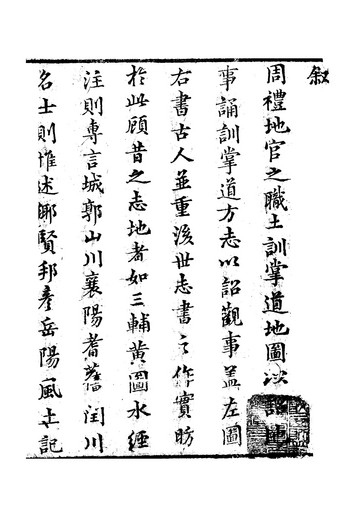 叙
周禮地官之職土訓掌道地圖以詔地
事誦訓掌道方志以詔觀事盖左圖
右書古人並重後世志書之作實昉
於此顧昔之志地者如三輔黄圖水經
注則專言城郭山川襄陽耆舊閩川
名士則惟述鄉賢邦彥岳陽風土記